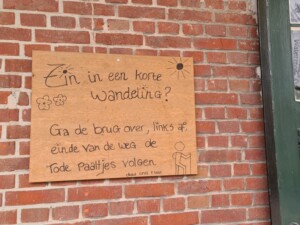 Zin in een korte
wandeling?
Ga de brug over, links af
einde van de weg de
rode paaltjes volgen